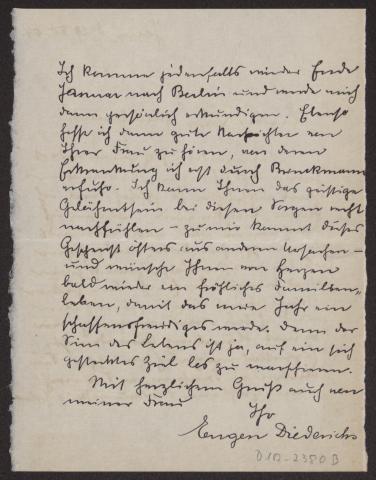 Ich komme jedenfalls wieder Ende
Januar nach Berlin und werde mich
dann persönlich erkundigen. Ebenso
hoffe ich dann gute Nachrichten von
Ihrer Frau zu hören, von deren
Erkrankung ich erst durch Bruckmann
erfuhr. Ich kann Ihnen das geistige
Gelähmtsein bei diesen Sorgen recht
nachfühlen – zu mir kommt dieses
Gespenst öfters aus andern Ursachen –
und wünsche Ihnen von Herzen
bald wieder ein fröhliches Familien-
leben, damit das neue Jahr ein
schaffensfreudiges werde. Denn der
Sinn des Lebens ist ja, auf ein sich
gestecktes Ziel los zu marschieren.
Mit herzlichem Gruß auch von
meiner Frau
Ihr
Eugen Diederichs